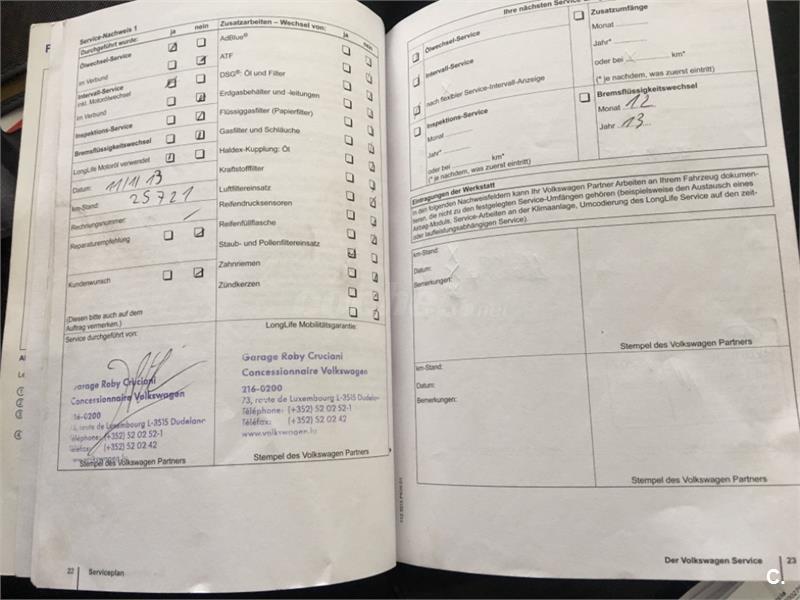 Service-Nachweis 1
Durchgeführt wurde: ja nein
Ölwechsel-Service
im Verbund
Intervall-Service
inkl. Motorölwechsel
im Verbund
Inspektions-Service
Bremsflüssigkeitswechsel
LongLife Motoröl verwendet
Datum: 11/11/13
km-Stand: 25721
Rechnungsnummer:
Reparaturempfehlung
Kundenwunsch
(Diesen bitte auch auf dem
Auftrag vermerken.)
Service durchgeführt von:
Garage Roby Cruciani
Concessionnaire Volkswagen
216-0200
73, route de Luxembourg L-3515 Dudelange
Téléphone: (+352) 52 02 52-1
Téléfax: (+352) 52 02 42
www.volkswagen.lu
Stempel des Volkswagen Partners
Zusatzarbeiten – Wechsel von: ja nein
AdBlue®
ATF
DSG®: Öl und Filter
Erdgasbehälter und -leitungen
Flüssiggasfilter (Papierfilter)
Gasfilter und Schläuche
Haldex-Kupplung: Öl
Kraftstofffilter
Luftfiltereinsatz
Reifendrucksensoren
Reifenfüllflasche
Staub- und Pollenfiltereinsatz
Zahnriemen
Zündkerzen
LongLife Mobilitätsgarantie:
Garage Roby Cruciani
Concessionnaire Volkswagen
216-0200
73, route de Luxembourg L-3515 Dudelan
Téléphone: (+352) 52 02 52-1
Téléfax: (+352) 52 02 42
www.volkswagen.lu
Stempel des Volkswagen Partners
22 Serviceplan
Ihre nächsten Service
Ölwechsel-Service
Intervall-Service
nach flexibler Service-Intervall-Anzeige
Inspektions-Service
Monat
Jahr*
oder bei km*
(* je nachdem, was zuerst eintritt)
Zusatzumfänge
Monat
Jahr*
oder bei km*
(* je nachdem, was zuerst eintritt)
Bremsflüssigkeitswechsel
Monat 12
Jahr 13
Eintragungen der Werkstatt
In den folgenden Nachweisfeldern kann Ihr Volkswagen Partner Arbeiten an Ihrem Fahrzeug dokumen-
tieren, die nicht zu den festgelegten Service-Umfängen gehören (beispielsweise den Austausch eines
Airbag-Moduls, Service-Arbeiten an der Klimaanlage, Umcodierung des LongLife Service auf den zeit-
oder laufleistungsabhängigen Service).
km-Stand:
Datum:
Bemerkungen:
Stempel des Volkswagen Partners
km-Stand:
Datum:
Bemerkungen:
Stempel des Volkswagen Partners
Der Volkswagen Service 23
C.